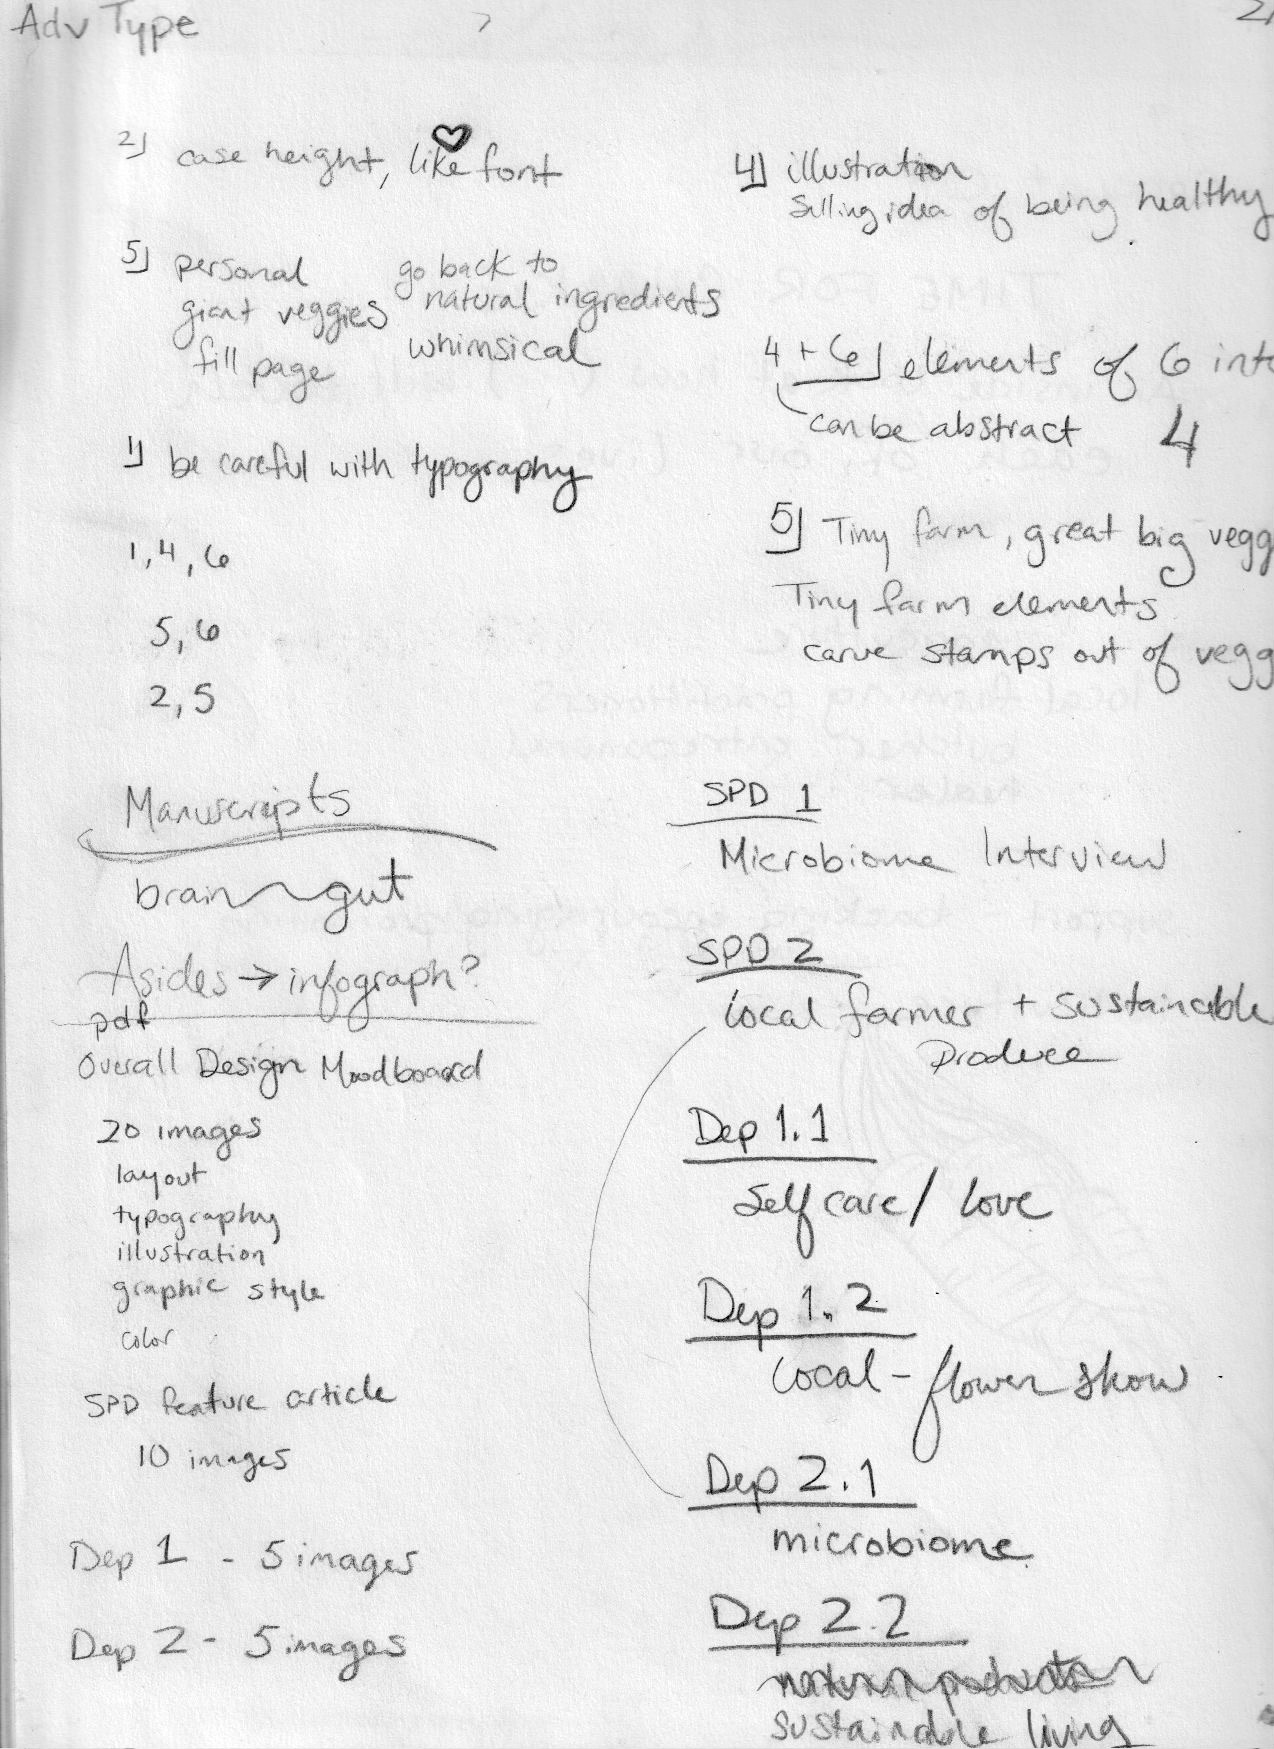 Adv Type
2) case height, like font
5) personal
giant veggies
fill page
go back to
natural ingredients
whimsical
1) be careful with typography
1,4,6
5,6
2,5
4) illustration
Selling idea of being healthy
4+6) elements of 6 into
can be abstract 4
5) Tiny farm, great big vegg
Tiny farm elements
carve stamps out of vegg
Manuscripts
brain gut
Asides → infograph?
pdf
Overall Design Moodboard
20 images
layout
typography
illustration
graphic style
color
SPD feature article
10 images
Dep 1 - 5 images
Dep 2 - 5 images
SPD 1
Microbiome Interview
SPD 2
local farmer + sustainable
Produce
Dep 1.1
Self care / love
Dep 1.2
local - flower show
Dep 2.1
microbiome
Dep 2.2
sustainable living